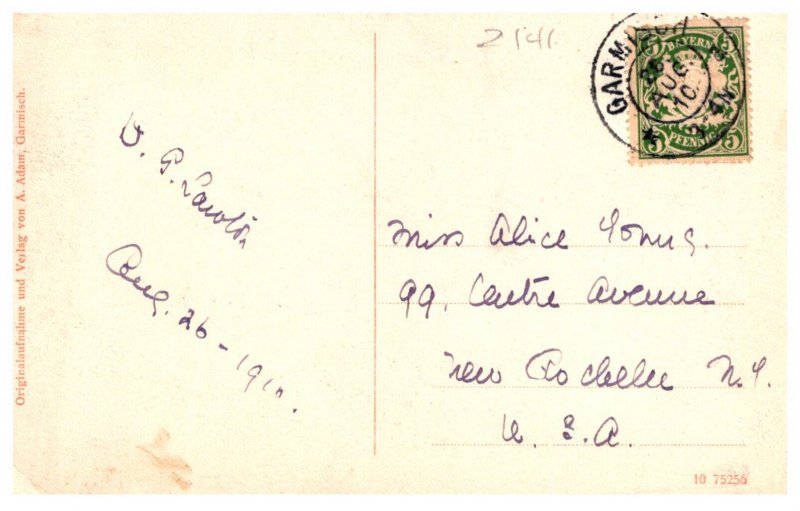 2141.
GARMISCH
26
AUG.
10
BAYERN
5 5
5 PFENNIG 5
Originalaufnahme und Verlag von A. Adam, Garmisch.
P. Lawton
Aug. 26 - 1910.
Miss Alice Young.
99. Centre Avenue
New Rochelle N.Y.
U. S. A.
10 75256